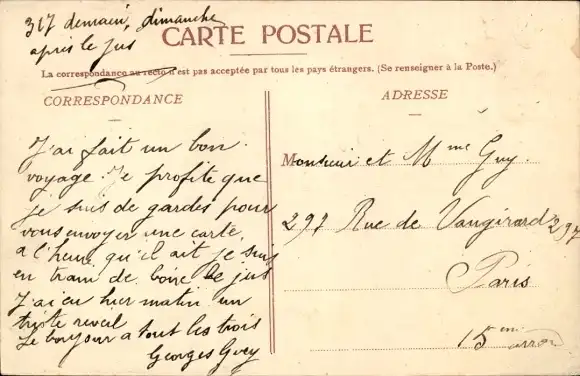 317 demain, dimanche
après le jus
CARTE POSTALE
La correspondance au recto n'est pas acceptée par tous les pays étrangers. (Se renseigner à la Poste.)
CORRESPONDANCE
J'ai fait un bon
voyage. Je profite que
je suis de gardes pour
vous envoyer une carte
a l'heure qu'il ait je suis
en train de boire le jus
J'ai eu hier matin un
triste reveil
Le bonjour a tout les trois
Georges Guey
ADRESSE
Monsieur et Mme Guy.
297 Rue de Vaugirard 297
Paris
15eme arron